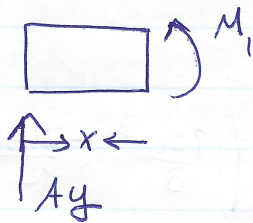 M₁
x
Ay